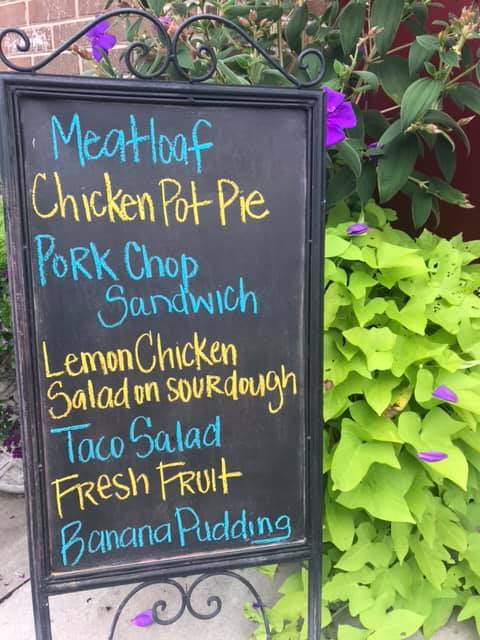 Meatloaf
Chicken Pot Pie
Pork Chop
Sandwich
Lemon Chicken
Salad on sourdough
Taco Salad
Fresh Fruit
Banana Pudding